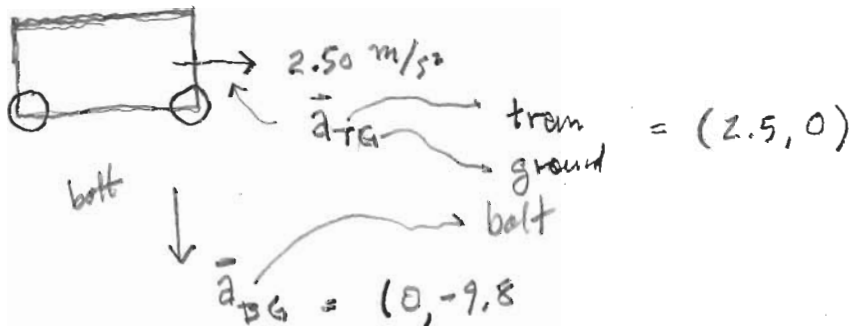 2.50 m/s²
a⃗_TG train = (2.5, 0)
ground
bolt bolt
a⃗_BG = (0, -9.8